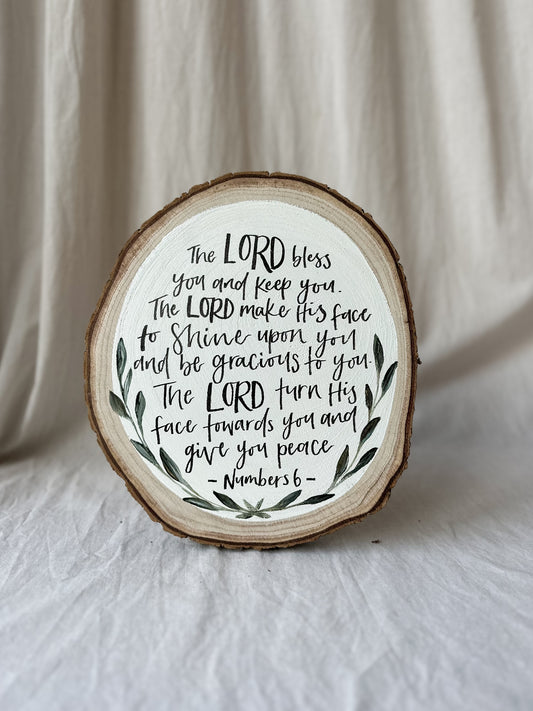 The LORD bless
you and keep you.
The LORD make His face
to Shine upon you
and be gracious to you.
The LORD turn His
face towards you and
give you peace
- Numbers 6 -